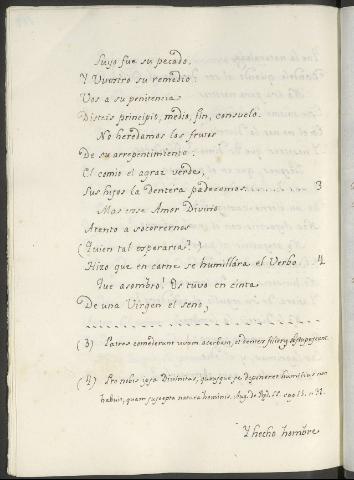 Suyo fue su pecado,
Y Vuestro su remedio:
Vos a su penitencia
Disteis principio, medio, fin, consuelo.
No heredamos los frutos
De su arrepentimiento:
El comio el agraz verde,
Sus hijos la dentera padecemos. 3
Mas ese Amor Divino
Atento a socorrernos
(Quien tal esperaria?)
Hizo que en carne se humillára el Verbo. 4
Que asombro! Os tuvo en cinta
De una Virgen el seno,
(3) Patres comederunt uvam acerbam, et dentes filiorum
(4) Pro nobis ipsa Divinitas, quousque se deponeret humilius non
habuit, quam suscepta natura hominis. Aug. de
Y hecho hombre